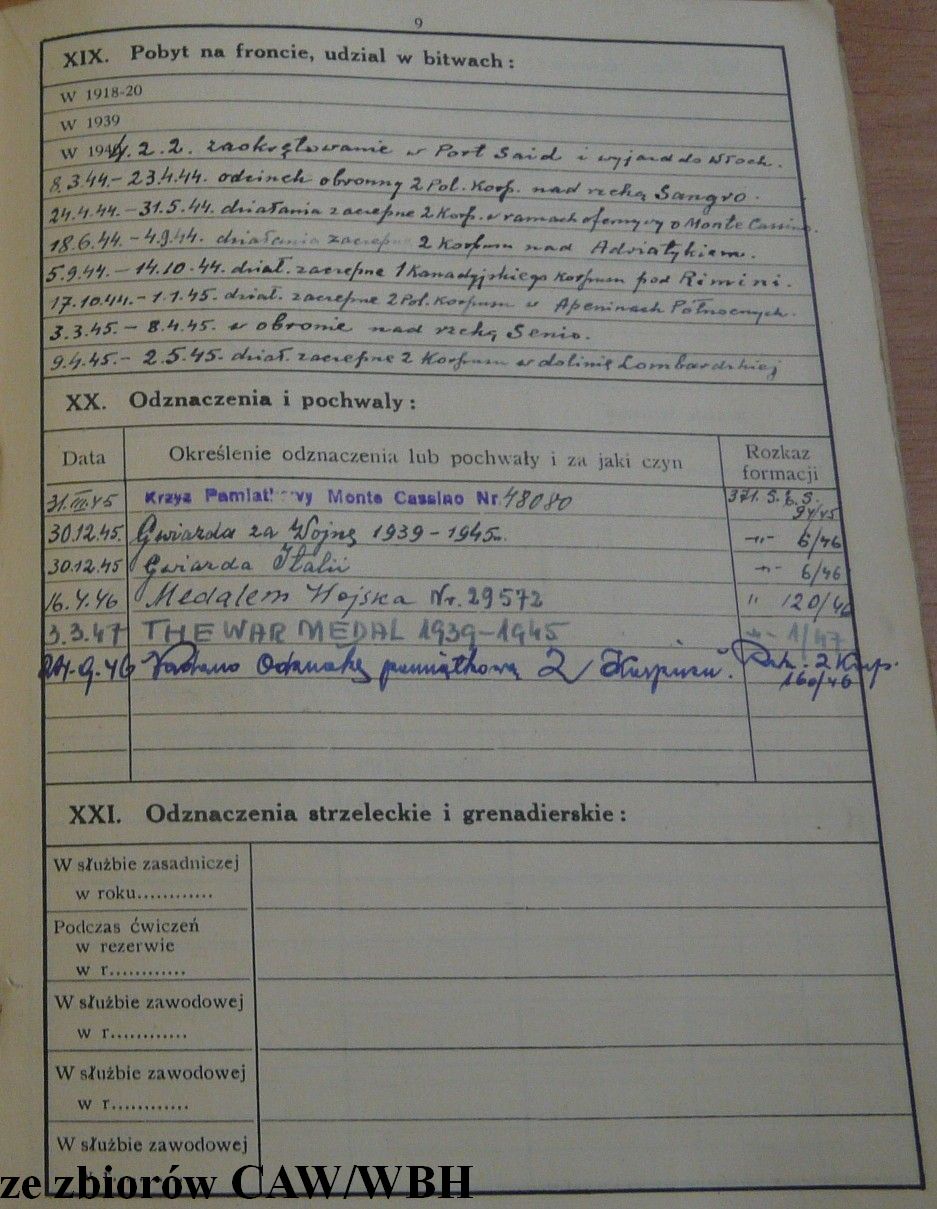 9
XIX. Pobyt na froncie, udział w bitwach :
W 1918-20
W 1939
W 1944. 2.2. zaokrętowanie w Port Said i wyjazd do Włoch.
8.3.44.- 23.4.44. odcinek obronny 2 Pol. Korp. nad rzeką Sangro.
24.4.44.-31.5.44. działania zaczepne 2 Korp. w ramach ofenzywy o Monte Cassino.
18.6.44.-4.9.44. działania zaczepne 2 Korpusu nad Adriatykiem.
5.9.44.-14.10.44. dział. zaczepne 1 Kanadyjskiego Korpusu pod Rimini.
17.10.44.-1.1.45. dział. zaczepne 2 Pol. Korpusu w Apeninach Północnych.
3.3.45.- 8.4.45. w obronie nad rzeką Senio.
9.4.45.- 2.5.45. dział. zaczepne 2 Korpusu w dolinie Lombardzkiej
XX. Odznaczenia i pochwały :
Data Określenie odznaczenia lub pochwały i za jaki czyn Rozkaz formacji
Krzyż Pamiątkowy Monte Cassino Nr. 48080 371. 94/45
30.12.45. Gwiazda za Wojnę 1939-1945. -"- 6/46
30.12.45 Gwiazda Italii -"- 6/46
16.4.46 Medalem Wojska Nr. 29572 " 120/46
3.3.47 THE WAR MEDAL 1939-1945 -"- 1/47
24.9.46 Odznakę pamiątkową 2 Korpusu. Roz. 2 Korp. 160/46
XXI. Odznaczenia strzeleckie i grenadierskie :
W służbie zasadniczej
w roku............
Podczas ćwiczeń
w rezerwie
w r............
W służbie zawodowej
w r............
W służbie zawodowej
w r............
W służbie zawodowej
ze zbiorów CAW/WBH